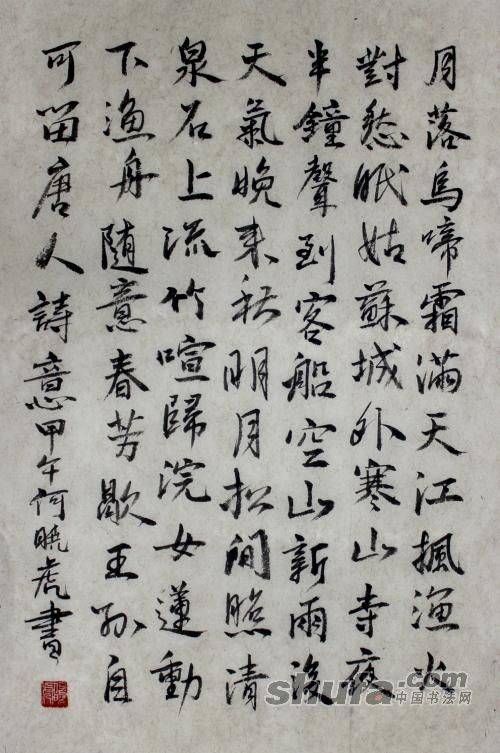 月落烏啼霜滿天江楓漁火
對愁眠姑蘇城外寒山寺夜
半鐘聲到客船空山新雨後
天氣晚来秋明月松间照清
泉石上流竹喧歸浣女蓮動
下漁舟随意春芳歇王孙自
可留唐人詩意甲午何曉虎書
shufa.com
中国书法网